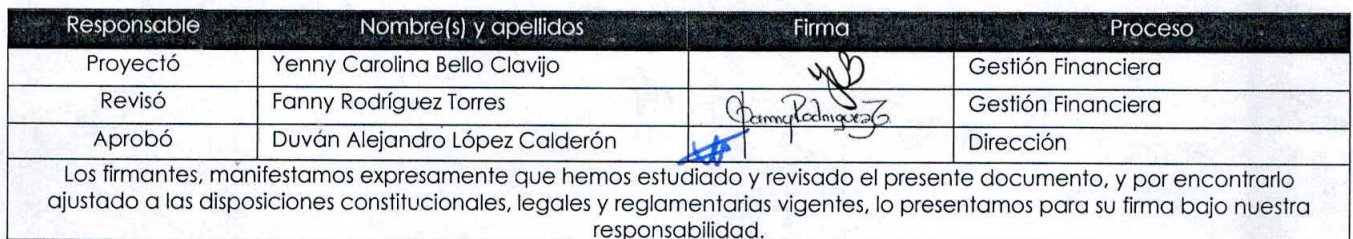 Responsable Nombre(s) y apellidos Firma Proceso
Proyectó Yenny Carolina Bello Clavijo YCB Gestión Financiera
Revisó Fanny Rodríguez Torres FannyRodriguezT Gestión Financiera
Aprobó Duván Alejandro López Calderón Dirección
Los firmantes, manifestamos expresamente que hemos estudiado y revisado el presente documento, y por encontrarlo
ajustado a las disposiciones constitucionales, legales y reglamentarias vigentes, lo presentamos para su firma bajo nuestra
responsabilidad.